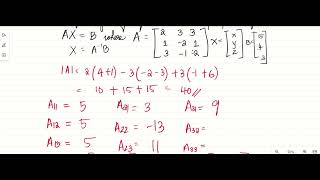 AX = B where A = [2 3 3 1 -2 1 3 -1 -2] X = [x y z] B = [5 -4 3]
X = A⁻¹B
|A| = 2(4+1) - 3(-2-3) + 3(-1+6)
= 10 + 15 + 15 = 40//
A11 = 5 A21 = 3 A31 = 9
A12 = 5 A22 = -13 A32 =
A13 = 5 A23 = 11 A33 =